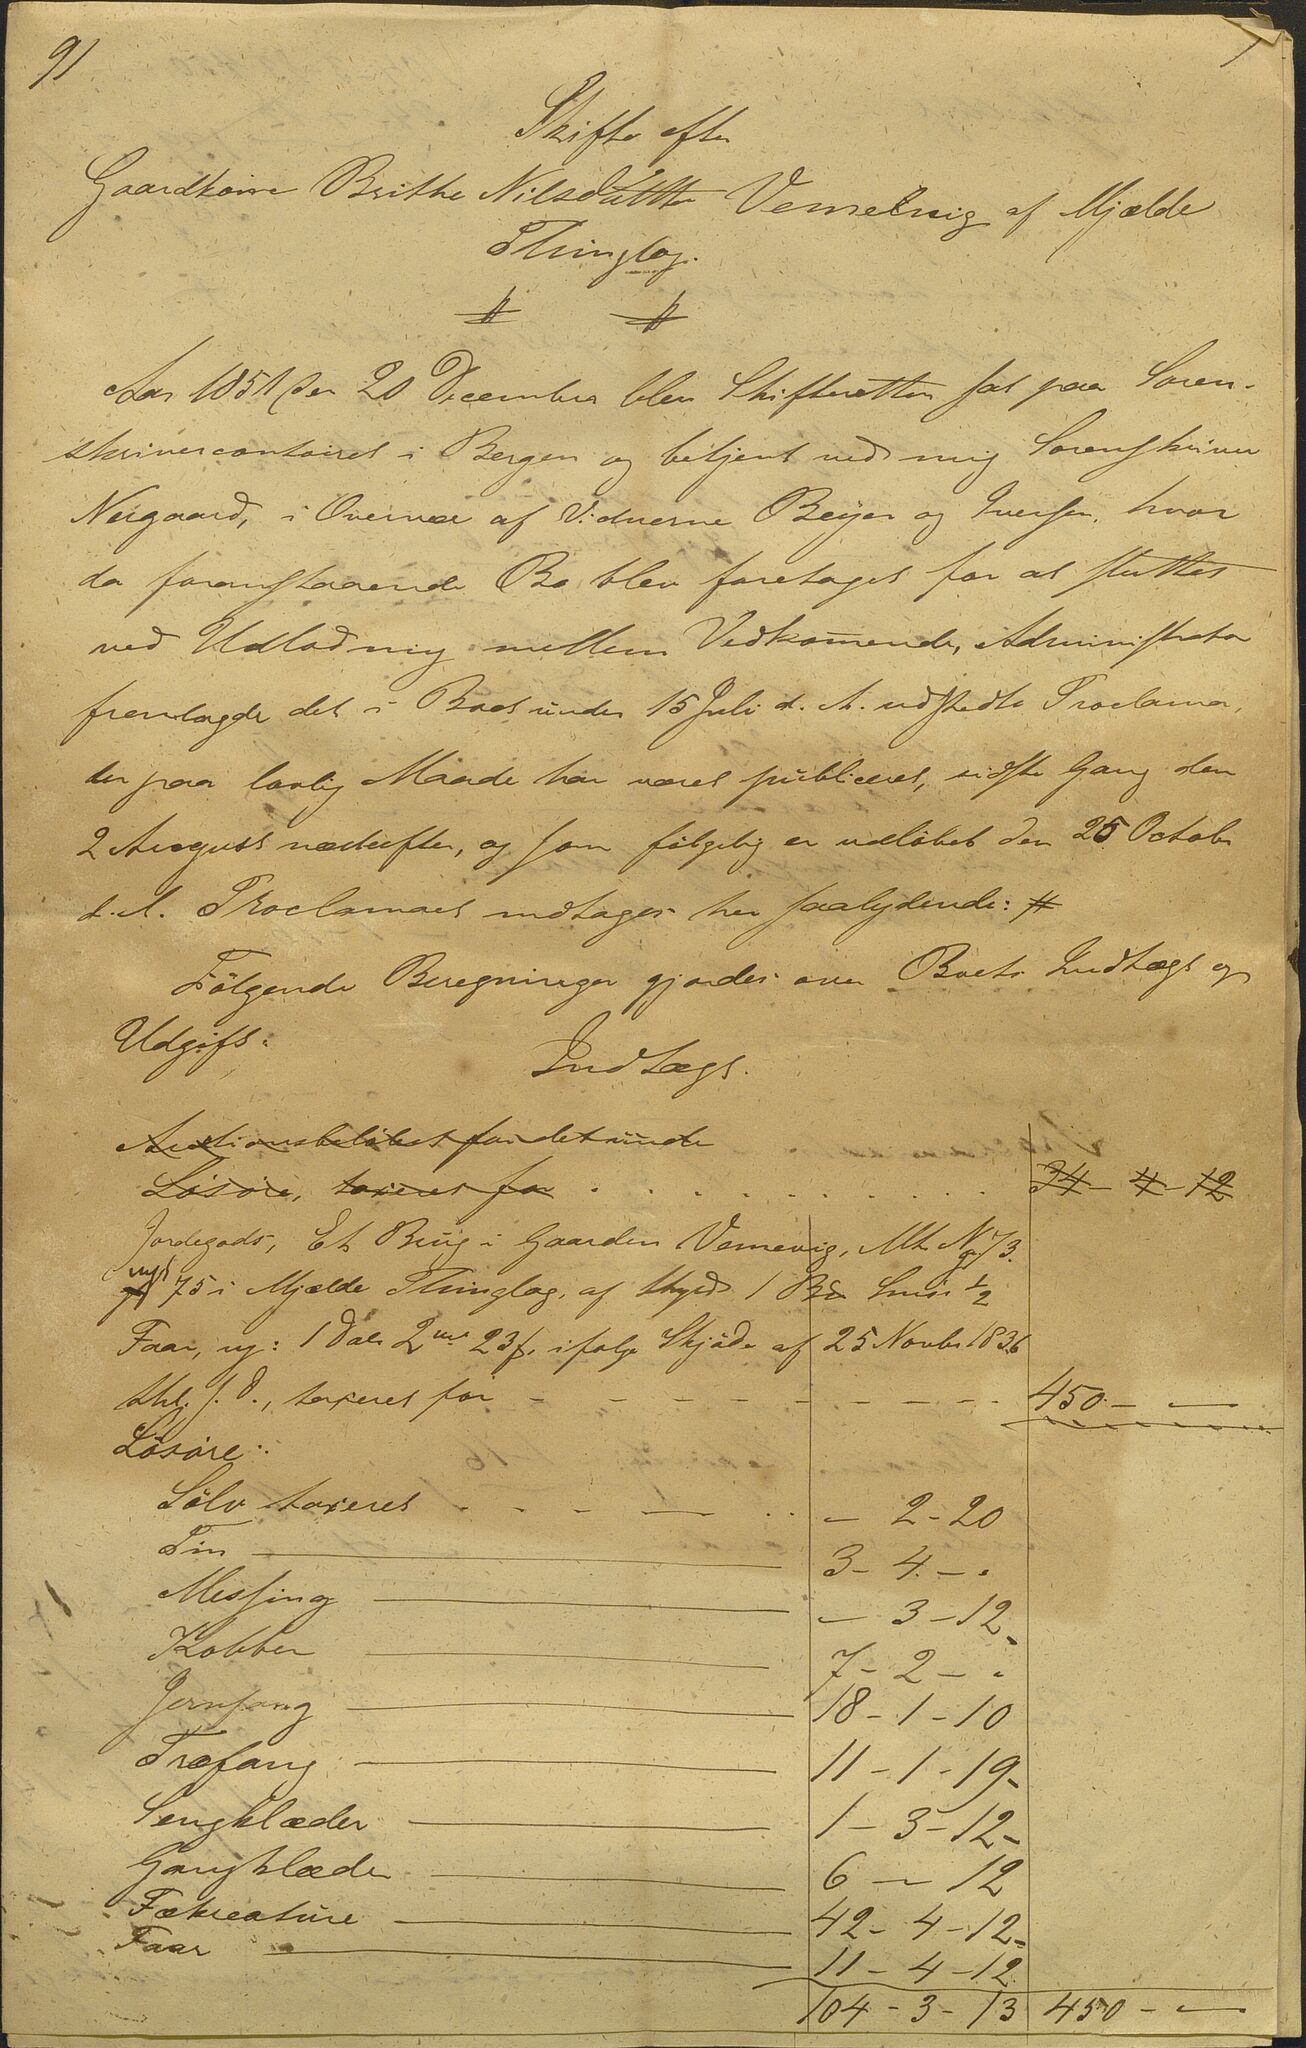 91
1
Skifte efter
Gaardkone Brithe Nilsdatter Vemelvig af Mjelde
Thinglag.
Aar 1851 den 20 Decembre blev Skifteretten sat paa Soren-
skrivercontoiret i Bergen og betjent ved mig Sorenskriver
Neigaard, i Overvær af Vidnerne Beyer og Iversen, hvor
da foranstaaende Bo blev foretaget for at sluttes
ved Udlodning mellem Vedkommende, Administrator
fremlagde det i Boet under 15 Juli d. A. udstedte Proclama,
der paa lovlig Maade har været publiceret, sidste Gang den
2 August næstefter, og som følgelig er udløbet den 25 Octobr
d. A. Proclamaet indtages her saalydende:
Følgende Beregninger gjordes over Boets Indtægt og
Udgift:
Indtægt.
Auctionsbeløbet for det under
Løsøre, taxeret for . . . . . . . . . . 34 - 4 - 12
Jordegods, Et Brug i Gaarden Vemevig, Mt. No 73.
nyt 75 i Mjelde Thinglag, af Skyld 1 Bd Smør 1/2
Faar, ny: 1 Dal 2 mrk 23 s. ifølge Skjøde af 25 Novbr 1836
thl. s. D., taxeret for - - - - - - - - - 450 - —
Løsøre:
Sølv taxeret . - - — — . . — 2 - 20
Tin — 3 - 4 - .
Messing — — 3 - 12
Kobber — 7 - 2 - .
Jernfang — 18 - 1 - 10
Træfang — 11 - 1 - 19
Sengklæder — 1 - 3 - 12
Gangklæder — 6 — 12
Fækreature — 42 - 4 - 12
Faar — 11 - 4 - 12
104 - 3 - 13 450 - —